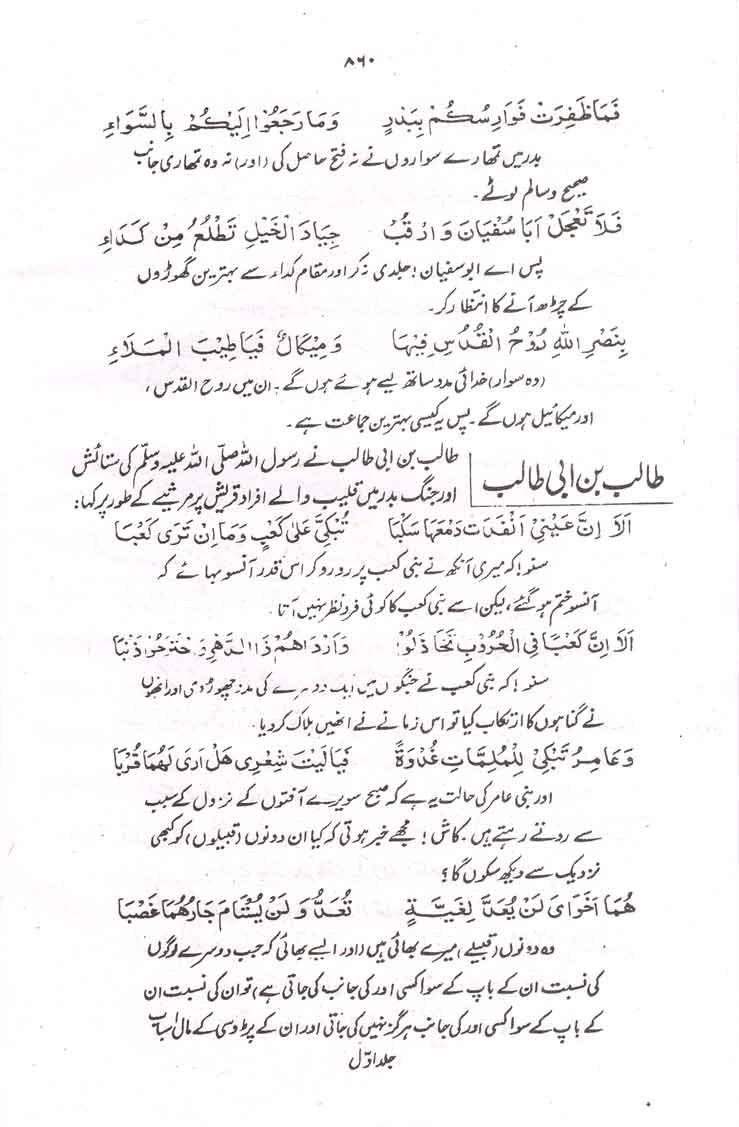 ۸۶۰
فَمَا ظَفِرَتْ فَوَارِسُكُمْ بِبَدْرٍ وَمَا رَجَعُوْا اِلَيْكُمْ بِالسَّوَاءِ
بدر میں تمھارے سواروں نے نہ فتح حاصل کی (اور) نہ وہ تمھاری جانب
صحیح و سالم لوٹے۔
فَلَا تَعْجَلْ اَبَا سُفْيَانَ وَارْقُبْ جِيَادَ الْخَيْلِ تَطْلُعُ مِنْ كَدَاءِ
پس اے ابو سفیان! جلدی نہ کر اور مقام کداء سے بہترین گھوڑوں
کے چڑھ آنے کا انتظار کر۔
بِنَصْرِ اللهِ رُوْحُ الْقُدُسِ فِيْهَا وَمِيْكَالٌ فَيَا طِيْبَ الْمَلَاءِ
(وہ سوار) خدائی مدد ساتھ لیے ہوئے ہوں گے۔ ان میں روح القدس،
اور میکائیل ہوں گے۔ پس یہ کیسی بہترین جماعت ہے۔
طالب بن ابی طالب
طالب بن ابی طالب نے رسول اللہ صلی اللہ علیہ وسلم کی ستائش
اور جنگ بدر میں قلیب والے افراد قریش پر مرثیے کے طور پر کہا:
اَلَا اِنَّ عَيْنِيْ اَنْفَدَتْ دَمْعَهَا سَكْبًا تُبَكِّيْ عَلٰى كَعْبٍ وَمَا اِنْ تَرٰى كَعْبًا
سنو! کہ میری آنکھ نے بنی کعب پر رو رو کر اس قدر آنسو بہائے کہ
آنسو ختم ہو گئے، لیکن اسے بنی کعب کا کوئی فرد نظر نہیں آتا۔
اَلَا اِنَّ كَعْبًا فِي الْحُرُوْبِ تَخَاذَلُوْا وَاَرْدَاهُمْ ذَا الدَّهْرِ وَاجْتَرَحُوْا ذَنْبًا
سنو! کہ بنی کعب نے جنگوں میں ایک دوسرے کی مدد چھوڑ دی اور انھوں
نے گناہوں کا ارتکاب کیا تو اس زمانے نے انھیں ہلاک کر دیا۔
وَعَامِرُ تَبْكِيْ لِلْمُلِمَّاتِ غُدْوَةً فَيَا لَيْتَ شِعْرِيْ هَلْ اَرٰى لَهُمَا قُرْبًا
اور بنی عامر کی حالت یہ ہے کہ صبح سویرے آفتوں کے نزول کے سبب
سے روتے رہتے ہیں۔ کاش! مجھے خبر ہوتی کہ کیا ان دونوں (قبیلوں) کو کبھی
نزدیک سے دیکھ سکوں گا؟
هُمَا اَخَوَايَ لَنْ يُعَدَّا لِغَيَّةٍ تُعَدُّ وَلَنْ يُسْتَامَ جَارُهُمَا غَصْبًا
وہ دونوں (قبیلے) میرے بھائی ہیں (اور ایسے بھائی کہ جب دوسرے لوگوں
کی نسبت ان کے باپ کے سوا کسی اور کی جانب کی جاتی ہے) تو ان کی نسبت ان
کے باپ کے سوا کسی اور کی جانب ہرگز نہیں کی جاتی اور ان کے پڑوسی کے مال اسباب
جلد اوّل